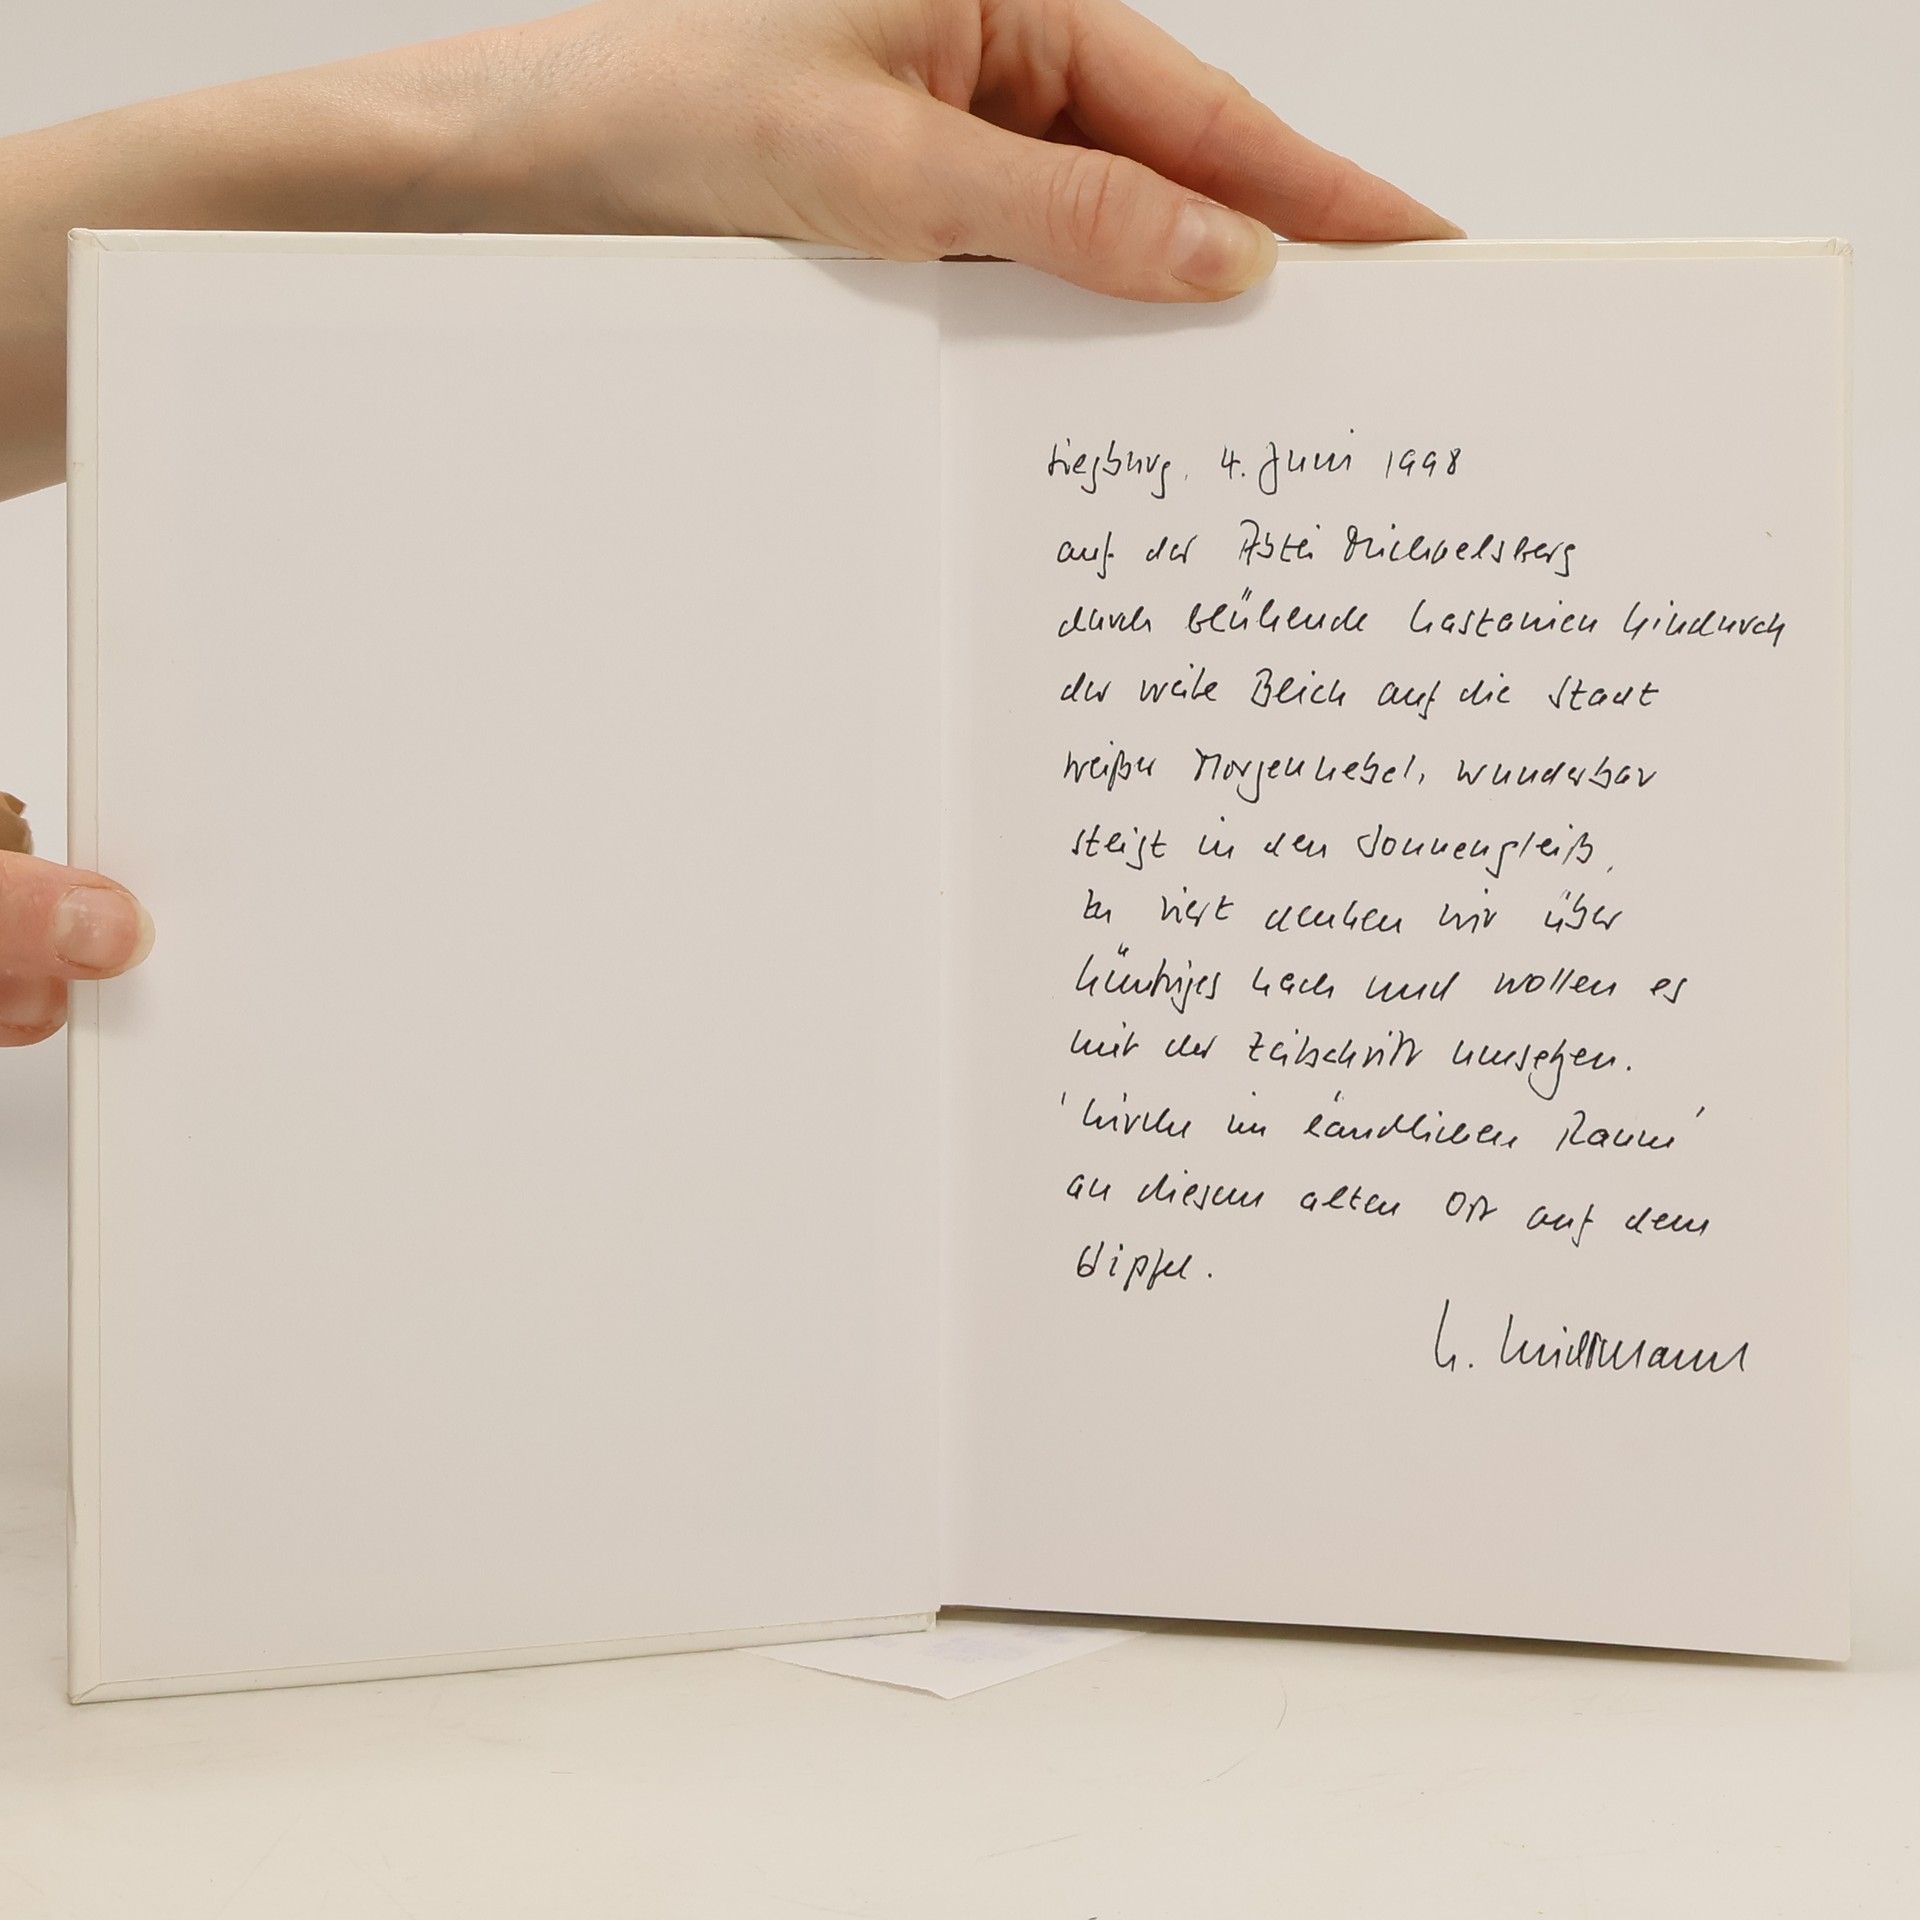 Siegburg, 4. Juni 1998
auf der Abtei Michaelsberg
durch blühende Kastanien hindurch
der weite Blick auf die Stadt
weißer Morgennebel, wunderbar
steigt in den Sonnengleiß,
zu viert denken wir über
künftiges nach und wollen es
mit der Zeitschrift umsetzen.
'Kirche im ländlichen Raum'
an diesem alten Ort auf dem
Gipfel.